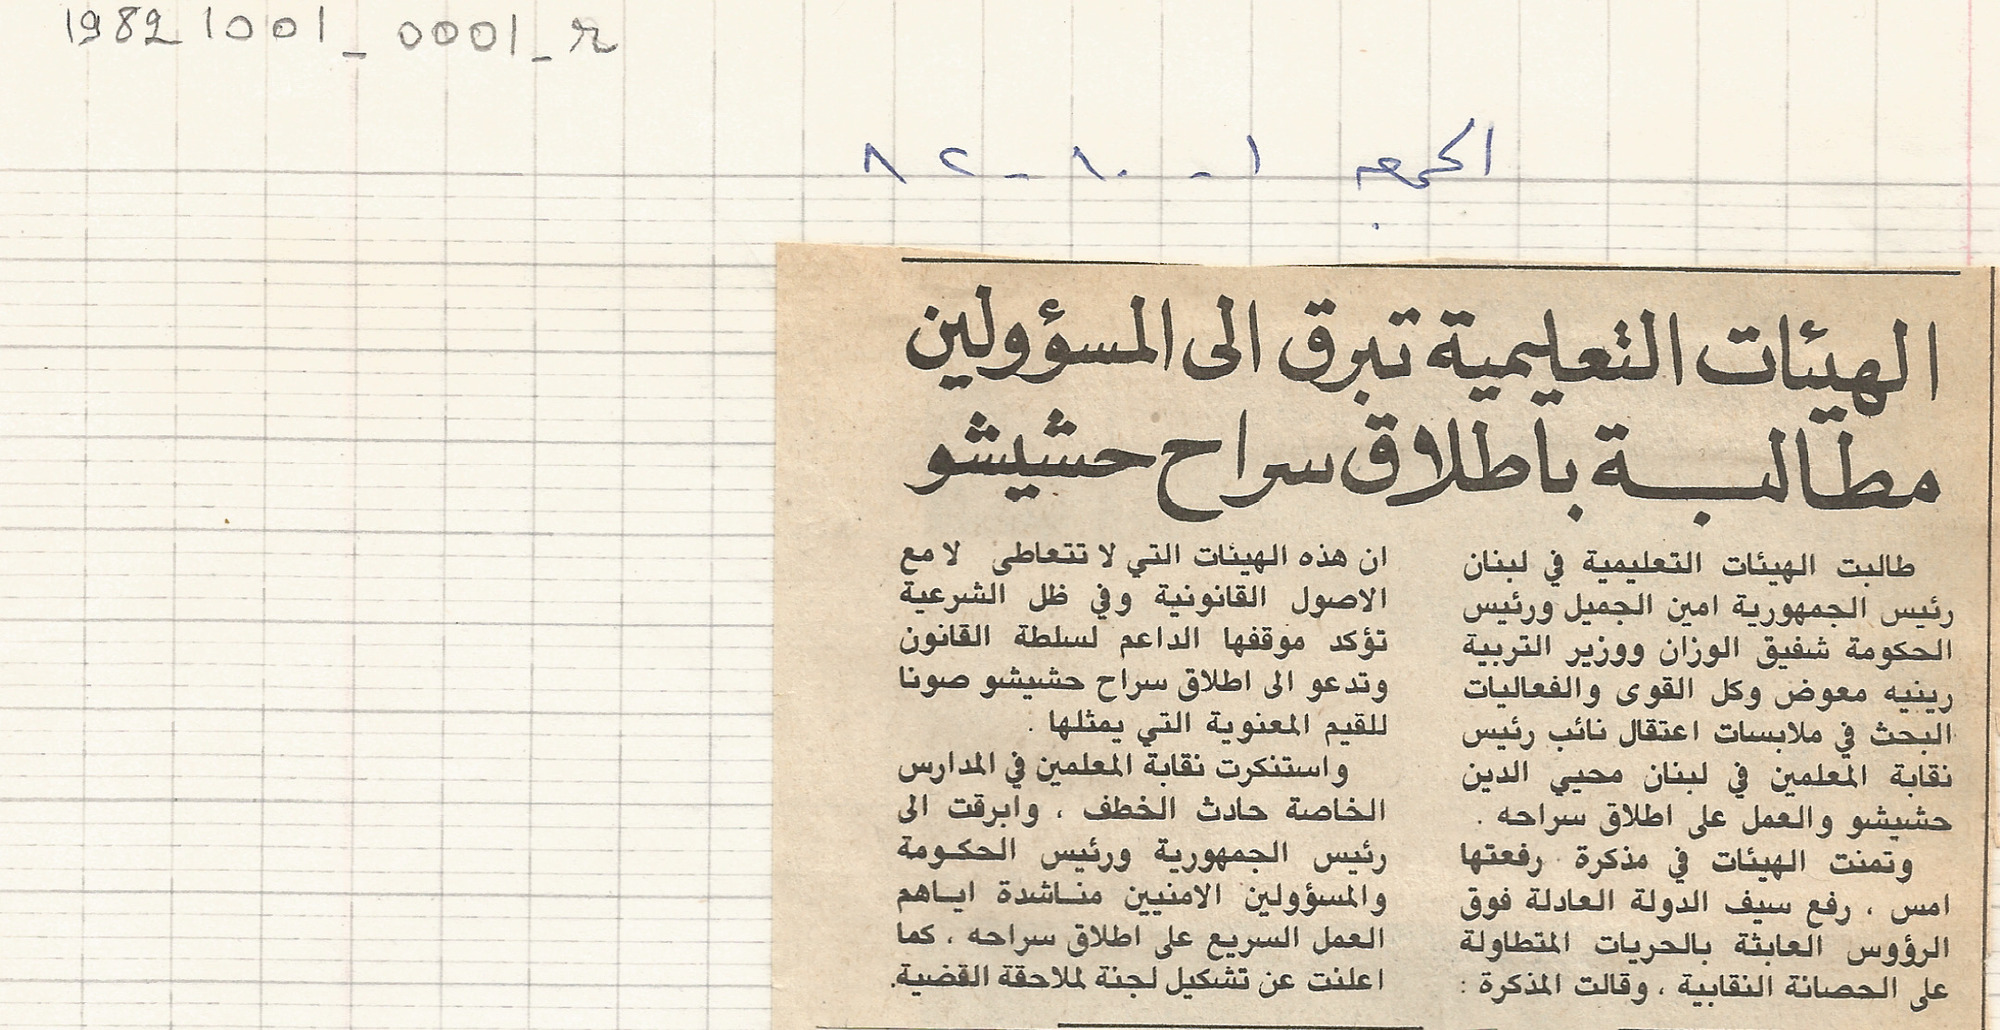 19821001_0001_r
الجمعه ١ - ١٠ - ٨٢
الهيئات التعليمية تبرق الى المسؤولين
مطالبة باطلاق سراح حشيشو
طالبت الهيئات التعليمية في لبنان
رئيس الجمهورية امين الجميل ورئيس
الحكومة شفيق الوزان ووزير التربية
رينيه معوض وكل القوى والفعاليات
البحث في ملابسات اعتقال نائب رئيس
نقابة المعلمين في لبنان محيي الدين
حشيشو والعمل على اطلاق سراحه .
وتمنت الهيئات في مذكرة رفعتها
امس ، رفع سيف الدولة العادلة فوق
الرؤوس العابثة بالحريات المتطاولة
على الحصانة النقابية ، وقالت المذكرة :
ان هذه الهيئات التي لا تتعاطى لا مع
الاصول القانونية وفي ظل الشرعية
تؤكد موقفها الداعم لسلطة القانون
وتدعو الى اطلاق سراح حشيشو صونا
للقيم المعنوية التي يمثلها .
واستنكرت نقابة المعلمين في المدارس
الخاصة حادث الخطف ، وابرقت الى
رئيس الجمهورية ورئيس الحكومة
والمسؤولين الامنيين مناشدة اياهم
العمل السريع على اطلاق سراحه ، كما
اعلنت عن تشكيل لجنة لملاحقة القضية.